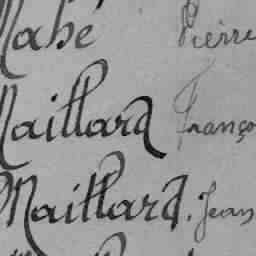 Mahé Pierre
Maillard Franço
Maillard, Jean